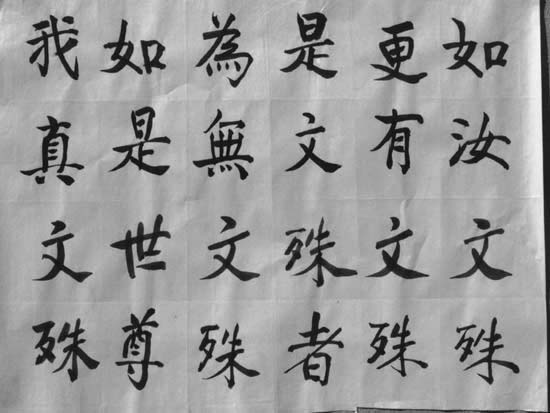 如汝文殊
更有文殊
是文殊者
為無文殊
如是世尊
我真文殊